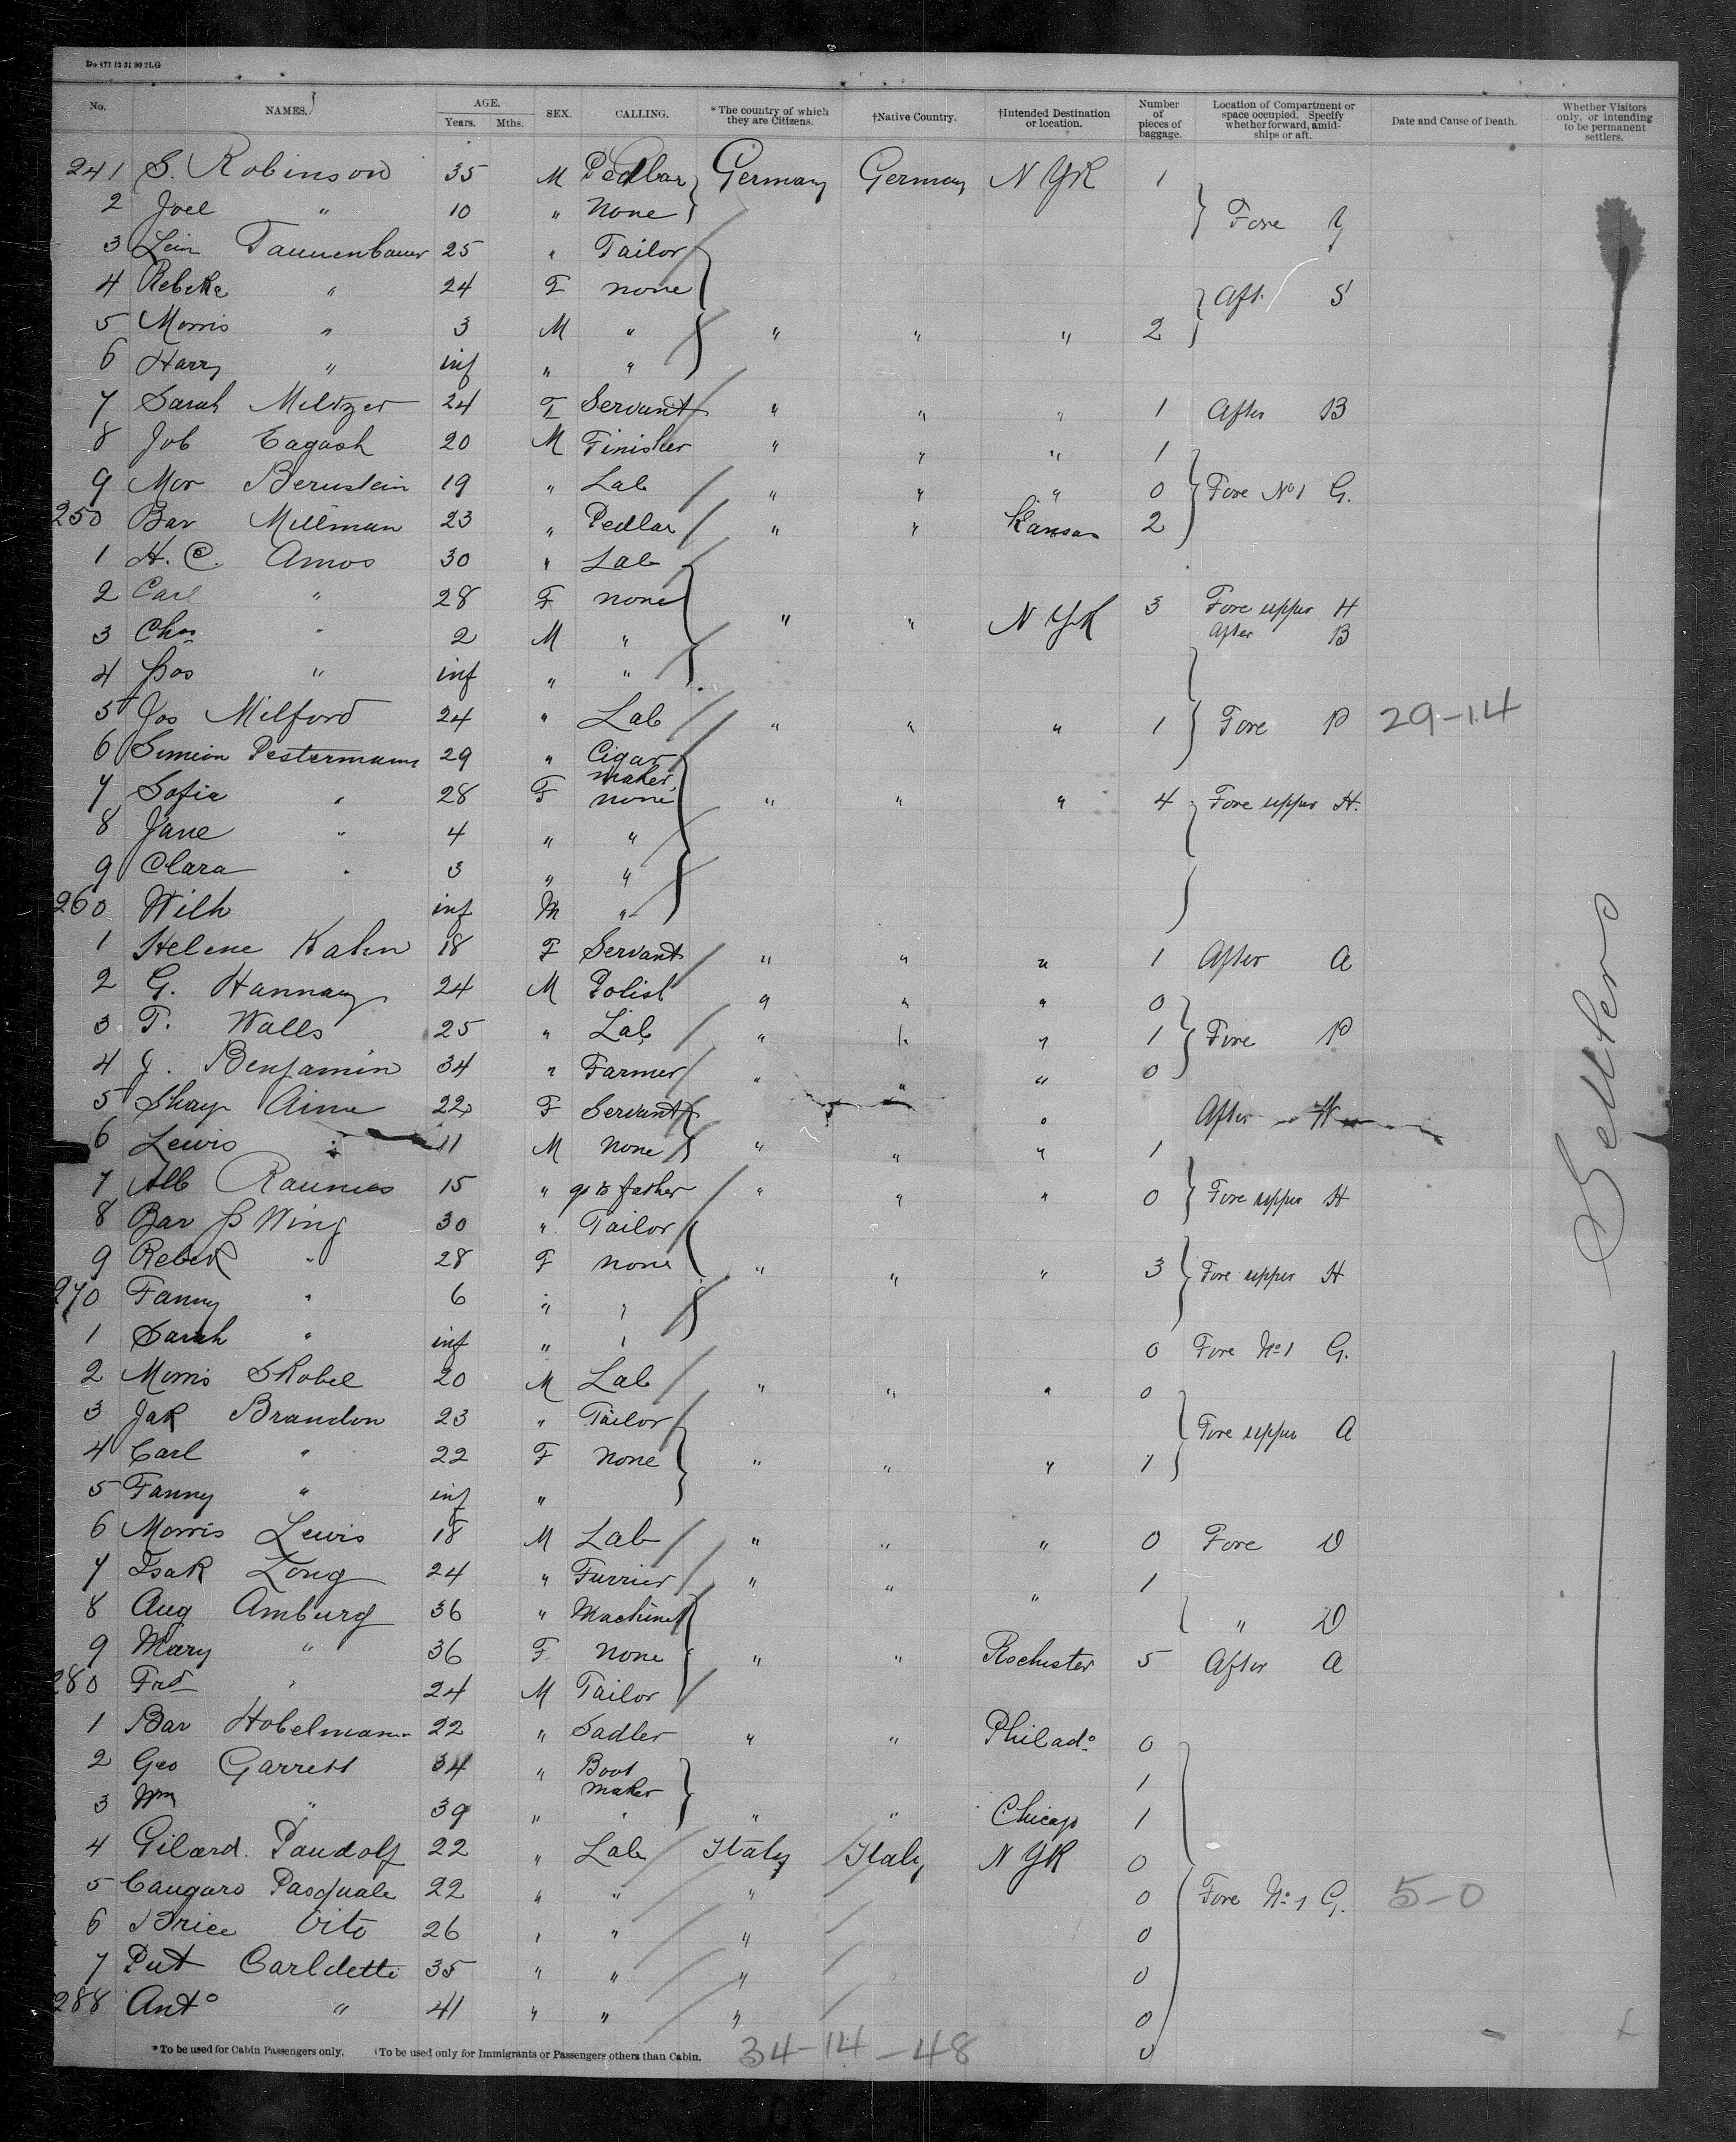 Do 477 12 31 90 2LG
No. NAMES. AGE. Years. Mths. SEX. CALLING. *The country of which they are Citizens. †Native Country. †Intended Destination or location. Number of pieces of baggage. Location of Compartment or space occupied. Specify whether forward, amidships or aft. Date and Cause of Death. Whether Visitors only, or intending to be permanent settlers.
241 S. Robinson 35 M Pedlar Germany Germany N YK 1
2 Joel " 10 " None Fore
3 Tannenbaum 25 " Tailor
4 Rebeka " 24 F none Aft. S
5 Morris " 3 M " " " " 2
6 Harry " inf " "
7 Sarah Meltzer 24 F Servant " " " 1 After B
8 Job 20 M Finisher " " " 1
9 Mor Bernstein 19 " Lab " " " 0 Fore No 1 G.
250 Bar Millman 23 " Pedlar " " Kansas 2
1 H. C. Amos 30 " Lab
2 Carl " 28 F none " " N YK 3 Fore upper H
3 Chas " 2 M " After B
4 " inf " "
5 Jos Milford 24 " Lab " " " 1 Fore P 29-14
6 Simeon Pestermann 29 " Cigar maker
7 Sofia " 28 F none " " " 4 Fore upper H.
8 Jane " 4 " "
9 Clara " 3 " "
260 Wilh inf M "
1 Helene Kahn 18 F Servant " " " 1 After A
2 G. Hannay 24 M Polish " " " 0
3 T. Walls 25 " Lab " " " 1 Fore P
4 J. Benjamin 34 " Farmer " " " 0
5 22 F Servant " After
6 Lewis " 11 M None " " " 1
7 Alb 15 " go to father " " " 0 Fore upper H
8 Bar Wing 30 " Tailor
9 Rebek " 28 F none " " " 3 Fore upper H
270 Fanny " 6 " "
1 Sarah " inf " " 0 Fore No 1 G.
2 Morris Skobel 20 M Lab " " " 0
3 Jak Brandon 23 " Tailor Fore upper A
4 Carl " 22 F none " " " 1
5 Fanny " inf "
6 Morris Lewis 18 M Lab " " " 0 Fore D
7 Isak Long 24 " Furrier " " " 1
8 Aug Amburg 36 " Machinist " D
9 Mary " 36 F none " " Rochester 5 After A
280 Frd " 24 M Tailor
1 Bar Hobelmann 22 " Sadler " " Philado 0
2 Geo Garrett 34 " Boot maker 1
3 Wm " 39 " " " " Chicago 1
4 Gilard. Pandolf 22 " Lab Italy Italy N YK 0
5 Cangaro Pasquale 22 " " " 0 Fore No 1 G. 5-0
6 Brice Vito 26 " " " 0
7 Put Carldetti 35 " " " 0
288 Anto " 41 " " " 0
0
Settlers
*To be used for Cabin Passengers only. †To be used only for Immigrants or Passengers others than Cabin. 34-14-48